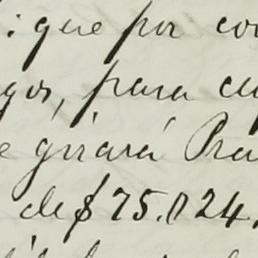 : que por co
gos, para cu
e girará Pra
de $ 75.024,